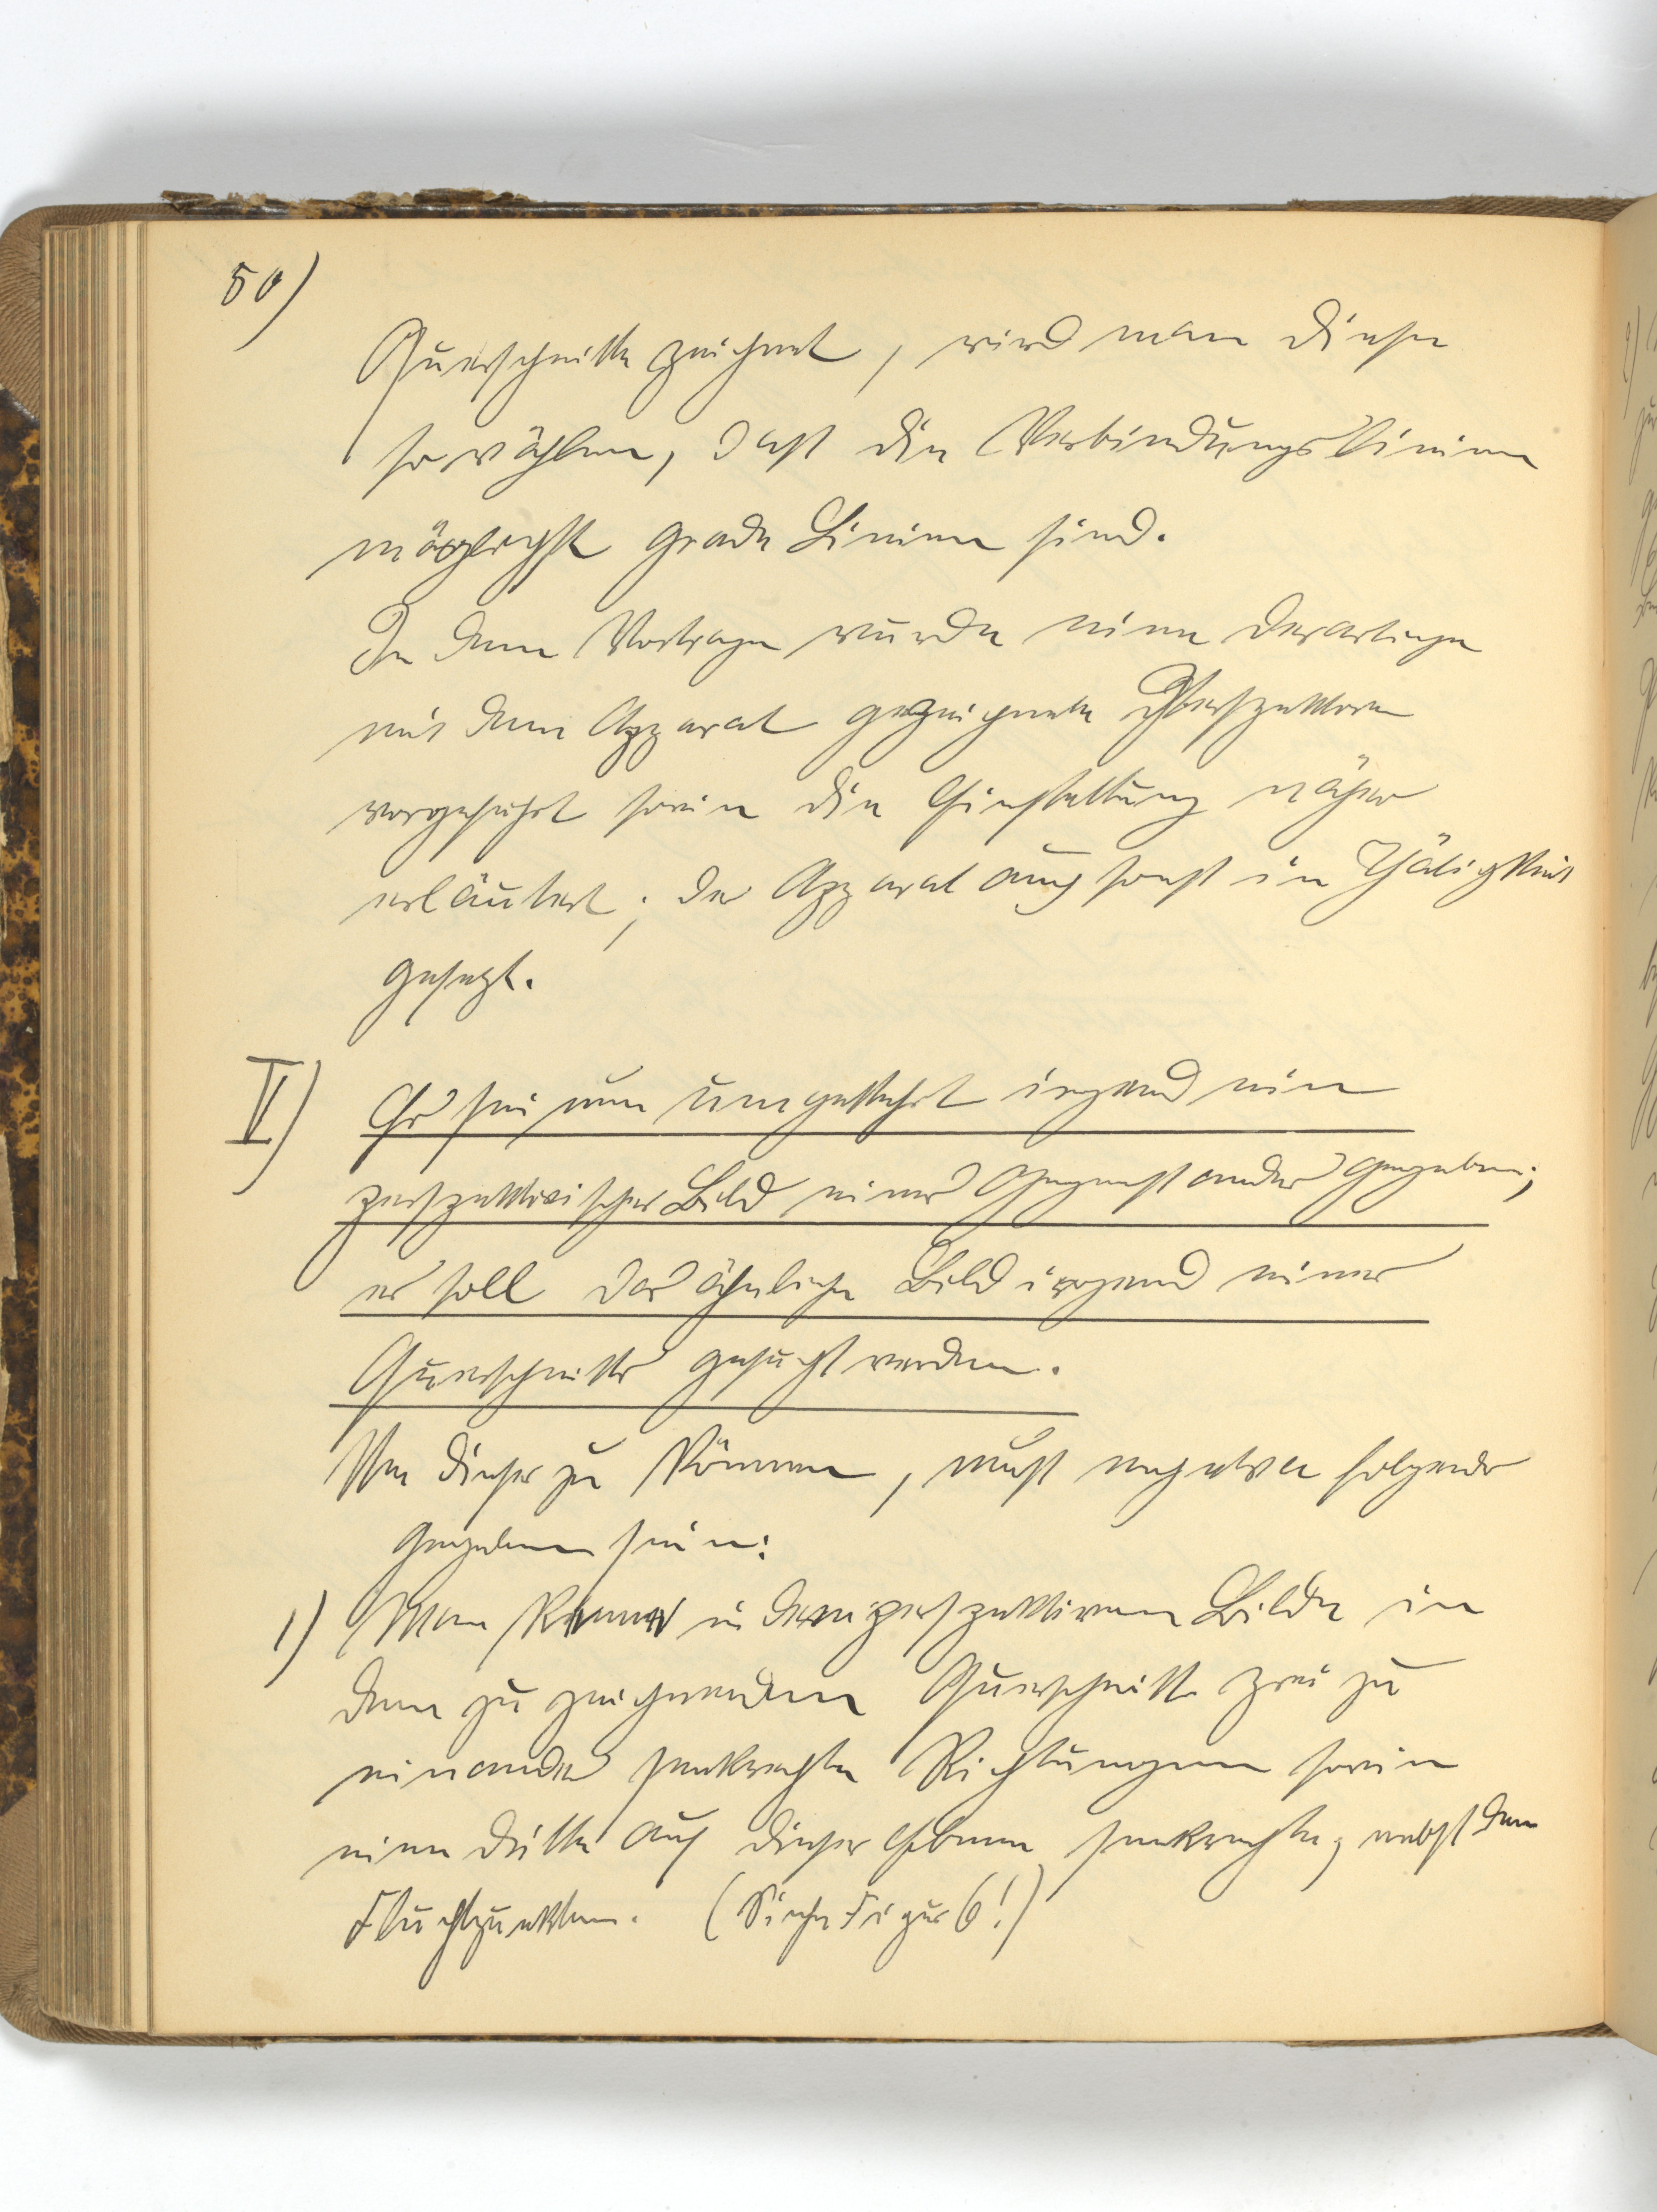 50)
Querschnitte zeichnet, wird man diese
so wählen, dass die Verbindungslinien
möglichst grade Linien sind.
In dem Vortrage wurde eine derartige
mit dem Apparat gezeichnete Perspektive
vorgeführt sowie die Einstellung näher
erläutert; der Apparat auch sonst in Thätigkeit
gesetzt.
II) Es sei nun umgekehrt irgend ein
perspektivisches Bild eines Gegenstandes gegeben;
es soll das ähnliche Bild irgend eines
Querschnitts gesucht werden.
Um dieses zu können, muss etwa folgendes
gegeben sein:
1) Man kenne in dem perspektiven Bilde in
dem zu zeichnenden Querschnitte zwei zu
einander senkrechte Richtungen sowie
eine dritte auf dieser Ebene senkrechte, nebst den
Fluchtpunkten. (Siehe Figur 6!)